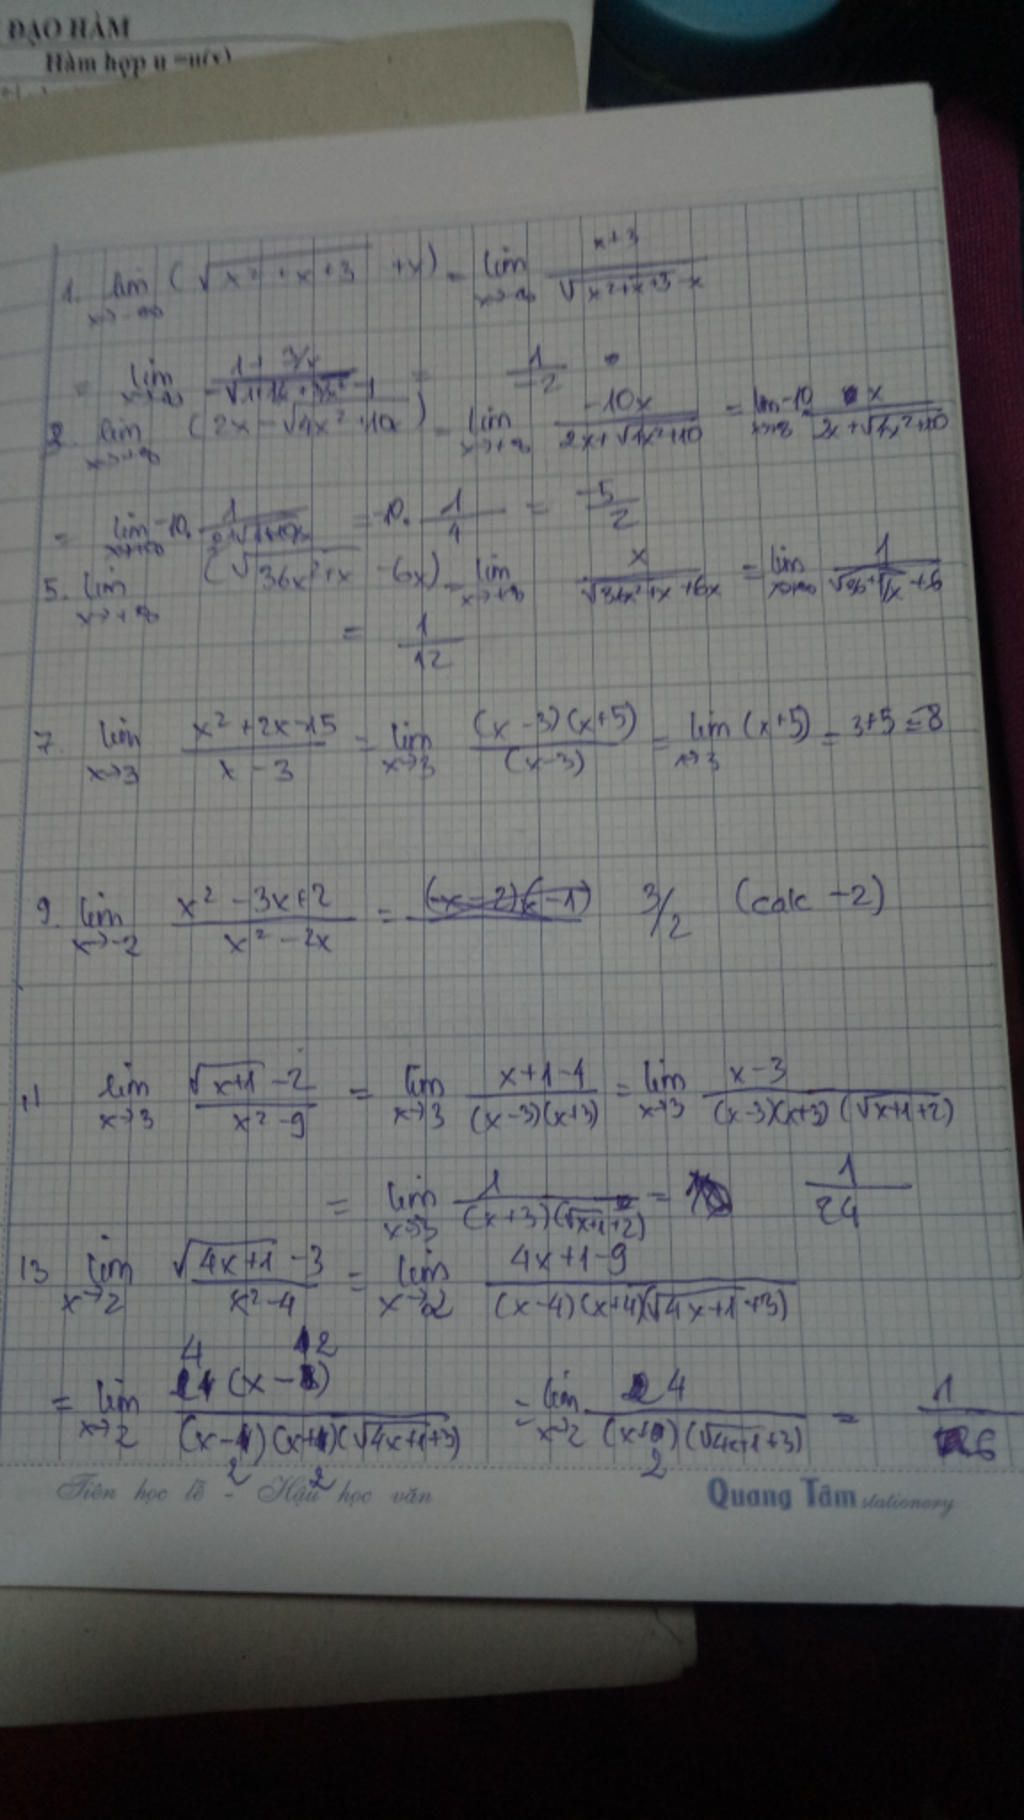 ĐẠO HÀM
Hàm hợp u =u(x)
1. lim x→-∞ (√(x² + x + 3) + x) = lim x→-∞ (x+3)/(√(x²+x+3) - x)
= lim x→-∞ (1 + 3/x)/(-√(1+1/x + 3/x²) - 1) = 1/-2
3. lim x→+∞ (2x - √(4x² + 10x)) = lim x→+∞ -10x/(2x+√(4x²+10)) = lim x→+∞ -10 x/(2x+√(4x²+10))
= lim x→+∞ -10. 1/(2+√(4+10/x)) = -10. 1/4 = -5/2
5. lim x→+∞ (√(36x²+x) - 6x) = lim x→+∞ x/(√(36x²+x) + 6x) = lim x→+∞ 1/(√(36+1/x) + 6)
= 1/12
7. lim x→3 (x²+2x-15)/(x-3) = lim x→3 (x-3)(x+5)/(x-3) = lim x→3 (x+5) = 3+5 = 8
9. lim x→-2 (x² - 3x+2)/(x² - 2x) = 3/2 (calc -2)
11 lim x→3 (√(x+1) - 2)/(x²-9) = lim x→3 (x+1-4)/((x-3)(x+3)) = lim x→3 (x-3)/((x-3)(x+3)(√(x+1)+2))
= lim x→3 1/((x+3)(√(x+1)+2)) = 1/24
13 lim x→2 (√(4x+1) - 3)/(x²-4) = lim x→2 (4x+1-9)/((x-4)(x+4)(√(4x+1)+3))
= lim x→2 4(x-2)/((x-2)(x+2)(√(4x+1)+3)) = lim x→2 4/((x+2)(√(4x+1)+3)) = 1/6
Tiên học lễ - Hậu học văn
Quang Tâm stationery